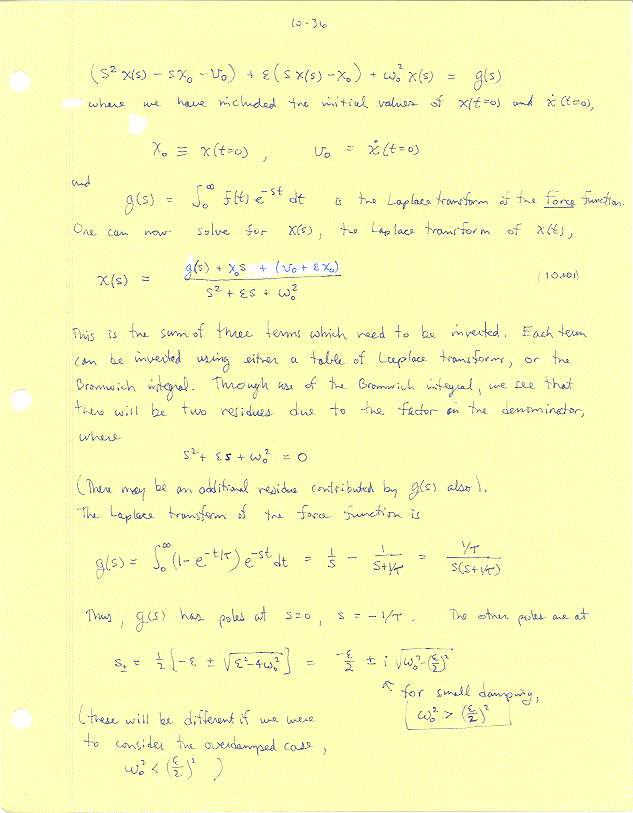 10-36
(s² x(s) - s x₀ - v₀) + ε(s x(s) - x₀) + ω₀² x(s) = g(s)
where we have included the initial values of x(t=0) and ẋ(t=0),
x₀ ≡ x(t=0) , v₀ = ẋ(t=0)
and
g(s) = ∫₀^∞ f(t) e^(-st) dt is the Laplace transform of the force function.
One can now solve for x(s), the Laplace transform of x(t),
x(s) = (g(s) + x₀s + (v₀ + εx₀)) / (s² + εs + ω₀²) (10.101)
This is the sum of three terms which need to be inverted. Each term
can be inverted using either a table of Laplace transforms, or the
Bromwich integral. Through use of the Bromwich integral, we see that
there will be two residues due to the factor in the denominator,
where
s² + εs + ω₀² = 0
(There may be an additional residue contributed by g(s) also).
The Laplace transform of the force function is
g(s) = ∫₀^∞ (1 - e^(-t/τ)) e^(-st) dt = 1/s - 1/(s+1/τ) = (1/τ)/(s(s+1/τ))
Thus, g(s) has poles at s=0, s = -1/τ. The other poles are at
s± = ½{-ε ± √(ε²-4ω₀²)} = -ε/2 ± i √(ω₀²-(ε/2)²)
↖ for small damping,
ω₀² > (ε/2)²
(these will be different if we were
to consider the overdamped case,
ω₀² < (ε/2)² )